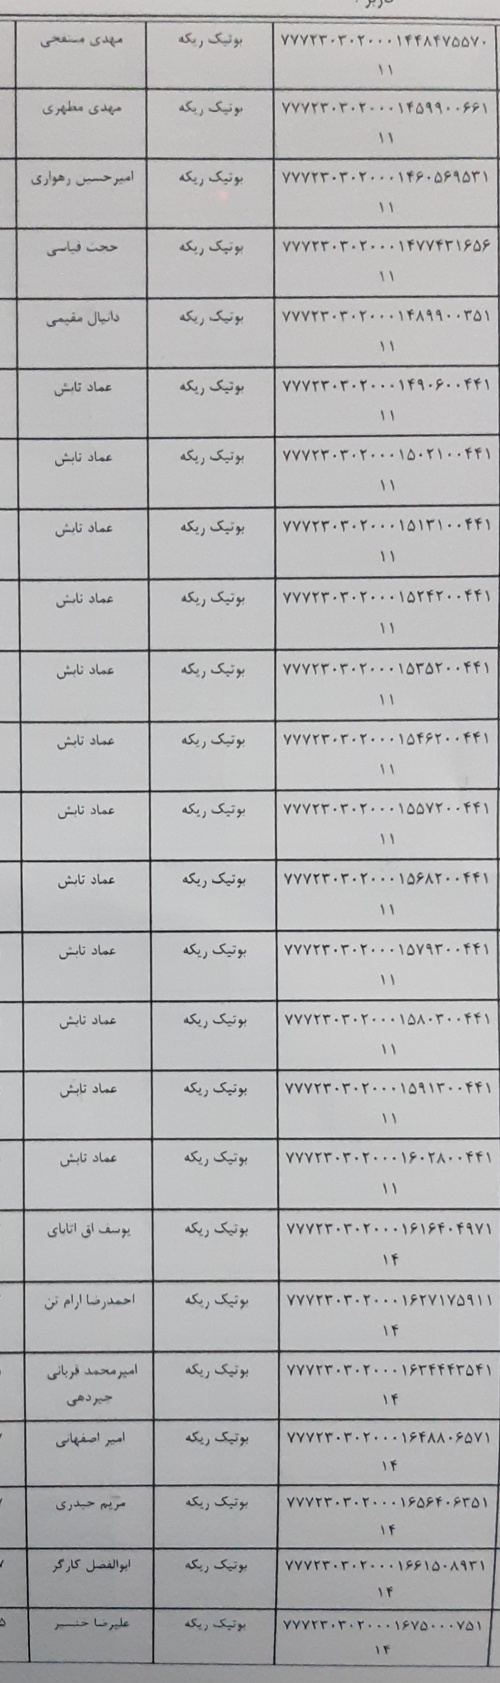 ۷۷۷۲۳۰۳۰۲۰۰۰۱۴۴۸۴۷۵۵۷۰ بوتیک ریکه مهدی مستفحی
۱۱
۷۷۷۲۳۰۳۰۲۰۰۰۱۴۵۹۹۰۰۶۶۱ بوتیک ریکه مهدی مطهری
۱۱
۷۷۷۲۳۰۳۰۲۰۰۰۱۴۶۰۵۶۹۵۳۱ بوتیک ریکه امیرحسین رهواری
۱۱
۷۷۷۲۳۰۳۰۲۰۰۰۱۴۷۷۴۳۱۶۵۶ بوتیک ریکه حجت قیاسی
۱۱
۷۷۷۲۳۰۳۰۲۰۰۰۱۴۸۹۹۰۰۳۵۱ بوتیک ریکه دانیال مقیمی
۱۱
۷۷۷۲۳۰۳۰۲۰۰۰۱۴۹۰۶۰۰۴۴۱ بوتیک ریکه عماد تابش
۱۱
۷۷۷۲۳۰۳۰۲۰۰۰۱۵۰۲۱۰۰۴۴۱ بوتیک ریکه عماد تابش
۱۱
۷۷۷۲۳۰۳۰۲۰۰۰۱۵۱۳۱۰۰۴۴۱ بوتیک ریکه عماد تابش
۱۱
۷۷۷۲۳۰۳۰۲۰۰۰۱۵۲۴۲۰۰۴۴۱ بوتیک ریکه عماد تابش
۱۱
۷۷۷۲۳۰۳۰۲۰۰۰۱۵۳۵۲۰۰۴۴۱ بوتیک ریکه عماد تابش
۱۱
۷۷۷۲۳۰۳۰۲۰۰۰۱۵۴۶۲۰۰۴۴۱ بوتیک ریکه عماد تابش
۱۱
۷۷۷۲۳۰۳۰۲۰۰۰۱۵۵۷۲۰۰۴۴۱ بوتیک ریکه عماد تابش
۱۱
۷۷۷۲۳۰۳۰۲۰۰۰۱۵۶۸۲۰۰۴۴۱ بوتیک ریکه عماد تابش
۱۱
۷۷۷۲۳۰۳۰۲۰۰۰۱۵۷۹۳۰۰۴۴۱ بوتیک ریکه عماد تابش
۱۱
۷۷۷۲۳۰۳۰۲۰۰۰۱۵۸۰۳۰۰۴۴۱ بوتیک ریکه عماد تابش
۱۱
۷۷۷۲۳۰۳۰۲۰۰۰۱۵۹۱۳۰۰۴۴۱ بوتیک ریکه عماد تابش
۱۱
۷۷۷۲۳۰۳۰۲۰۰۰۱۶۰۲۸۰۰۴۴۱ بوتیک ریکه عماد تابش
۱۱
۷۷۷۲۳۰۳۰۲۰۰۰۱۶۱۶۴۰۴۹۷۱ بوتیک ریکه یوسف اق اتابای
۱۴
۷۷۷۲۳۰۳۰۲۰۰۰۱۶۲۷۱۷۵۹۱۱ بوتیک ریکه احمدرضا ارام تن
۱۴
۷۷۷۲۳۰۳۰۲۰۰۰۱۶۳۴۴۴۳۵۴۱ بوتیک ریکه امیرمحمد قربانی
۱۴ جیردهی
۷۷۷۲۳۰۳۰۲۰۰۰۱۶۴۸۸۰۶۵۷۱ بوتیک ریکه امیر اصفهانی
۱۴
۷۷۷۲۳۰۳۰۲۰۰۰۱۶۵۶۴۰۶۳۵۱ بوتیک ریکه مریم حیدری
۱۴
۷۷۷۲۳۰۳۰۲۰۰۰۱۶۶۱۵۰۸۹۳۱ بوتیک ریکه ابوالفضل کارگر
۱۴
۷۷۷۲۳۰۳۰۲۰۰۰۱۶۷۵۰۰۰۷۵۱ بوتیک ریکه علیرضا
۱۴